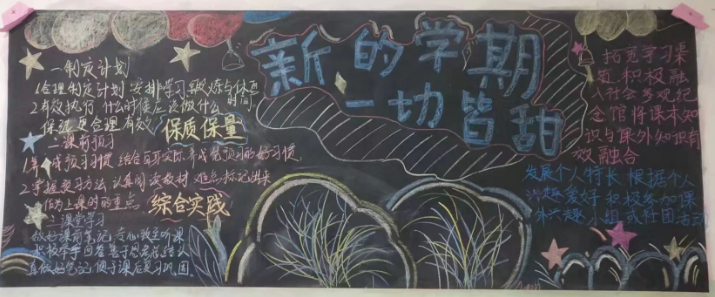 新的学期
一切皆甜
一制定计划
1合理制定计划 安排学习 锻炼与休息时间
2有效执行 什么时候应该做什么
保证更合理有效
保质保量
二课前预习
1养成预习习惯 结合自身实际 养成预习的好习惯
2掌握预习方法 认真阅读教材 难点标记出来
作为上课时的重点
综合实践
三课堂学习
做好课前笔记 专心致志听课
真做好笔记 便于课后复习巩固
拓宽学习渠
道 积极融
入社会 参观纪
念馆 将课本知
识与课外知识有
效融合
发展个人特长 根据个人
兴趣爱好 积极参加课
外兴趣小组或社团活动